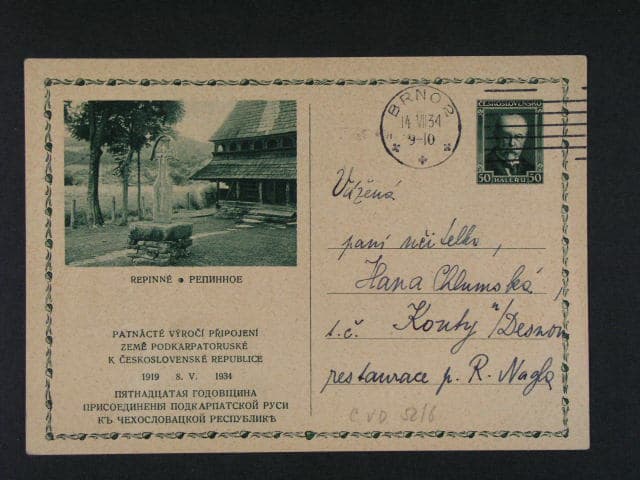 REPINNÉ • РЕПИННОЕ
PATNÁCTÉ VÝROČÍ PŘIPOJENÍ
ZEMĚ PODKARPATORUSKÉ
K ČESKOSLOVENSKÉ REPUBLICE
1919 8. V. 1934
ПЯТНАДЦАТАЯ ГОДОВЩИНА
ПРИСОЕДИНЕНІЯ ПОДКАРПАТСКОЙ РУСИ
КЪ ЧЕХОСЛОВАЦКОЙ РЕСПУБЛИКѢ
BRNO 2
14. VII 34
9-10
ČESKOSLOVENSKO
50 HALÉŘŮ 50
Vážená
paní učitelko,
Hana Chlumská,
t.č. Kouty n/Desnou
restaurace p. R. Nagla
C VD 52/6